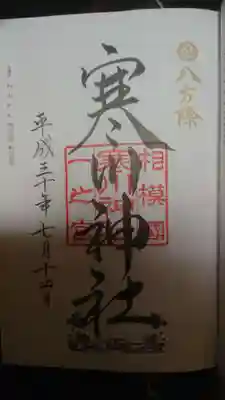 八方除
相模國
寒川神社
一之宮
寒川神社
平成三十年七月十四日